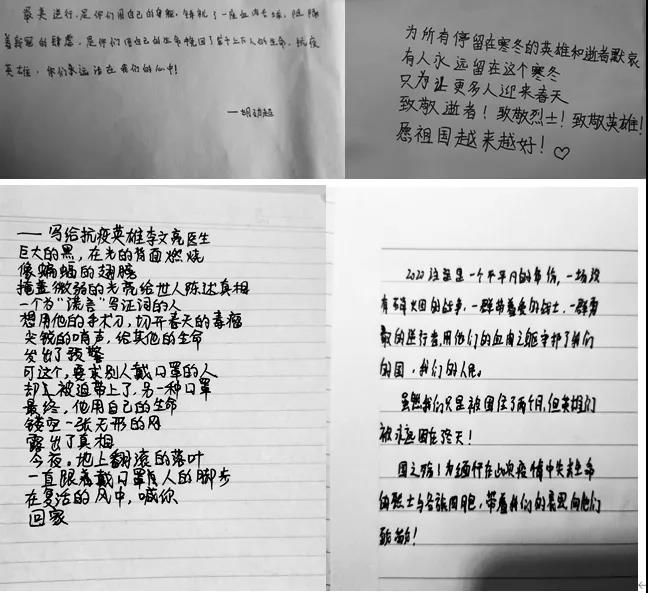 最美逆行,是你们用自己的身躯,铸就了一座血肉长城,阻隔
着新冠的肆虐,是你们用自己的生命挽回了若干上万人的生命,抗疫
英雄,你们永远活在我们的心中!
——胡
为所有停留在寒冬的英雄和逝者默哀
有人永远留在这个寒冬
只为让更多人迎来春天
致敬逝者!致敬烈士!致敬英雄!
愿祖国越来越好!♡
——写给抗疫英雄李文亮医生
巨大的黑,在光的背面燃烧
像蝙蝠的翅膀
掩盖微弱的光亮给世人陈述真相
一个为“谎言”写证词的人
想用他的手术刀,切开春天的毒瘤
尖锐的哨声,给其他的生命
发出了预警
可这个,要求别人戴口罩的人
却被迫带上了,另一种口罩
最终,他用自己的生命
镂空一张无形的网
露出了真相
今夜。地上翻滚的落叶
一直跟着戴口罩人的脚步
在复活的风中,喊你
回家
2020注定是一个不平凡的年份,一场没
有硝火国的战争,一群带着爱的战士,一群勇
敢的逆行者用他们的血肉之躯守护了我们
的国,我们的人民。
虽然我们只是被困住了两个月,但英雄们
被永远困在冬天!
国之殇!为缅怀在此次疫情中失去生命
的烈士与各族同胞,带着我们的哀思向他们
致敬!